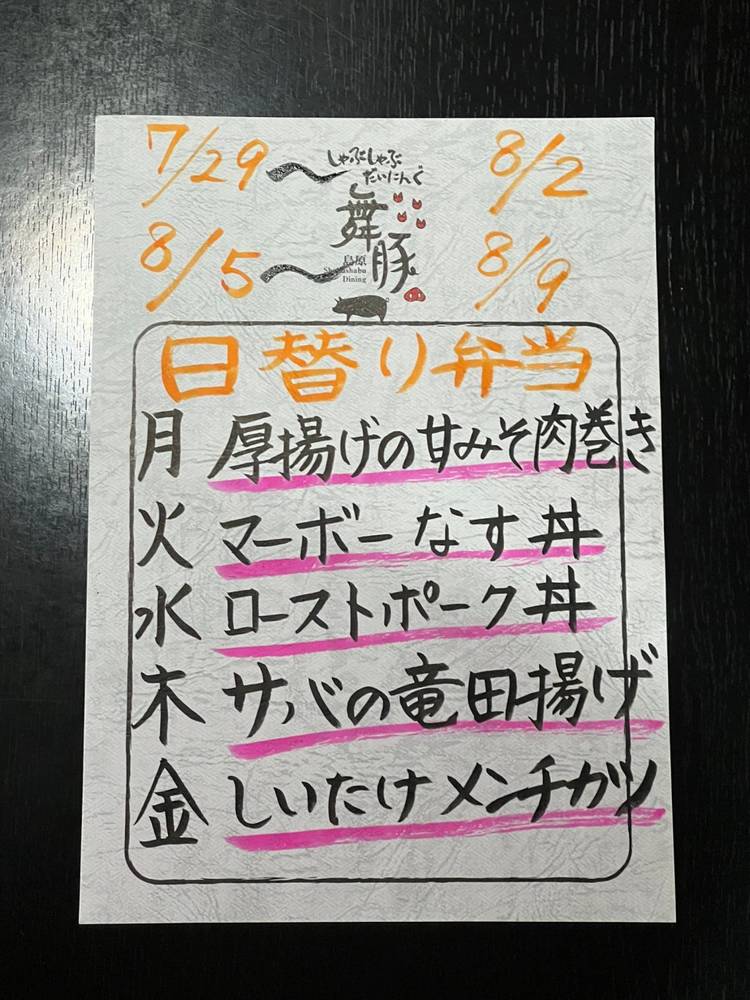 7/29〜 8/2
しゃぶしゃぶ
だいにんぐ
舞豚
島原
Shabushabu
Dining
8/5〜 8/9
日替り弁当
月 厚揚げの甘みそ肉巻き
火 マーボーなす丼
水 ローストポーク丼
木 サバの竜田揚げ
金 しいたけメンチガツ